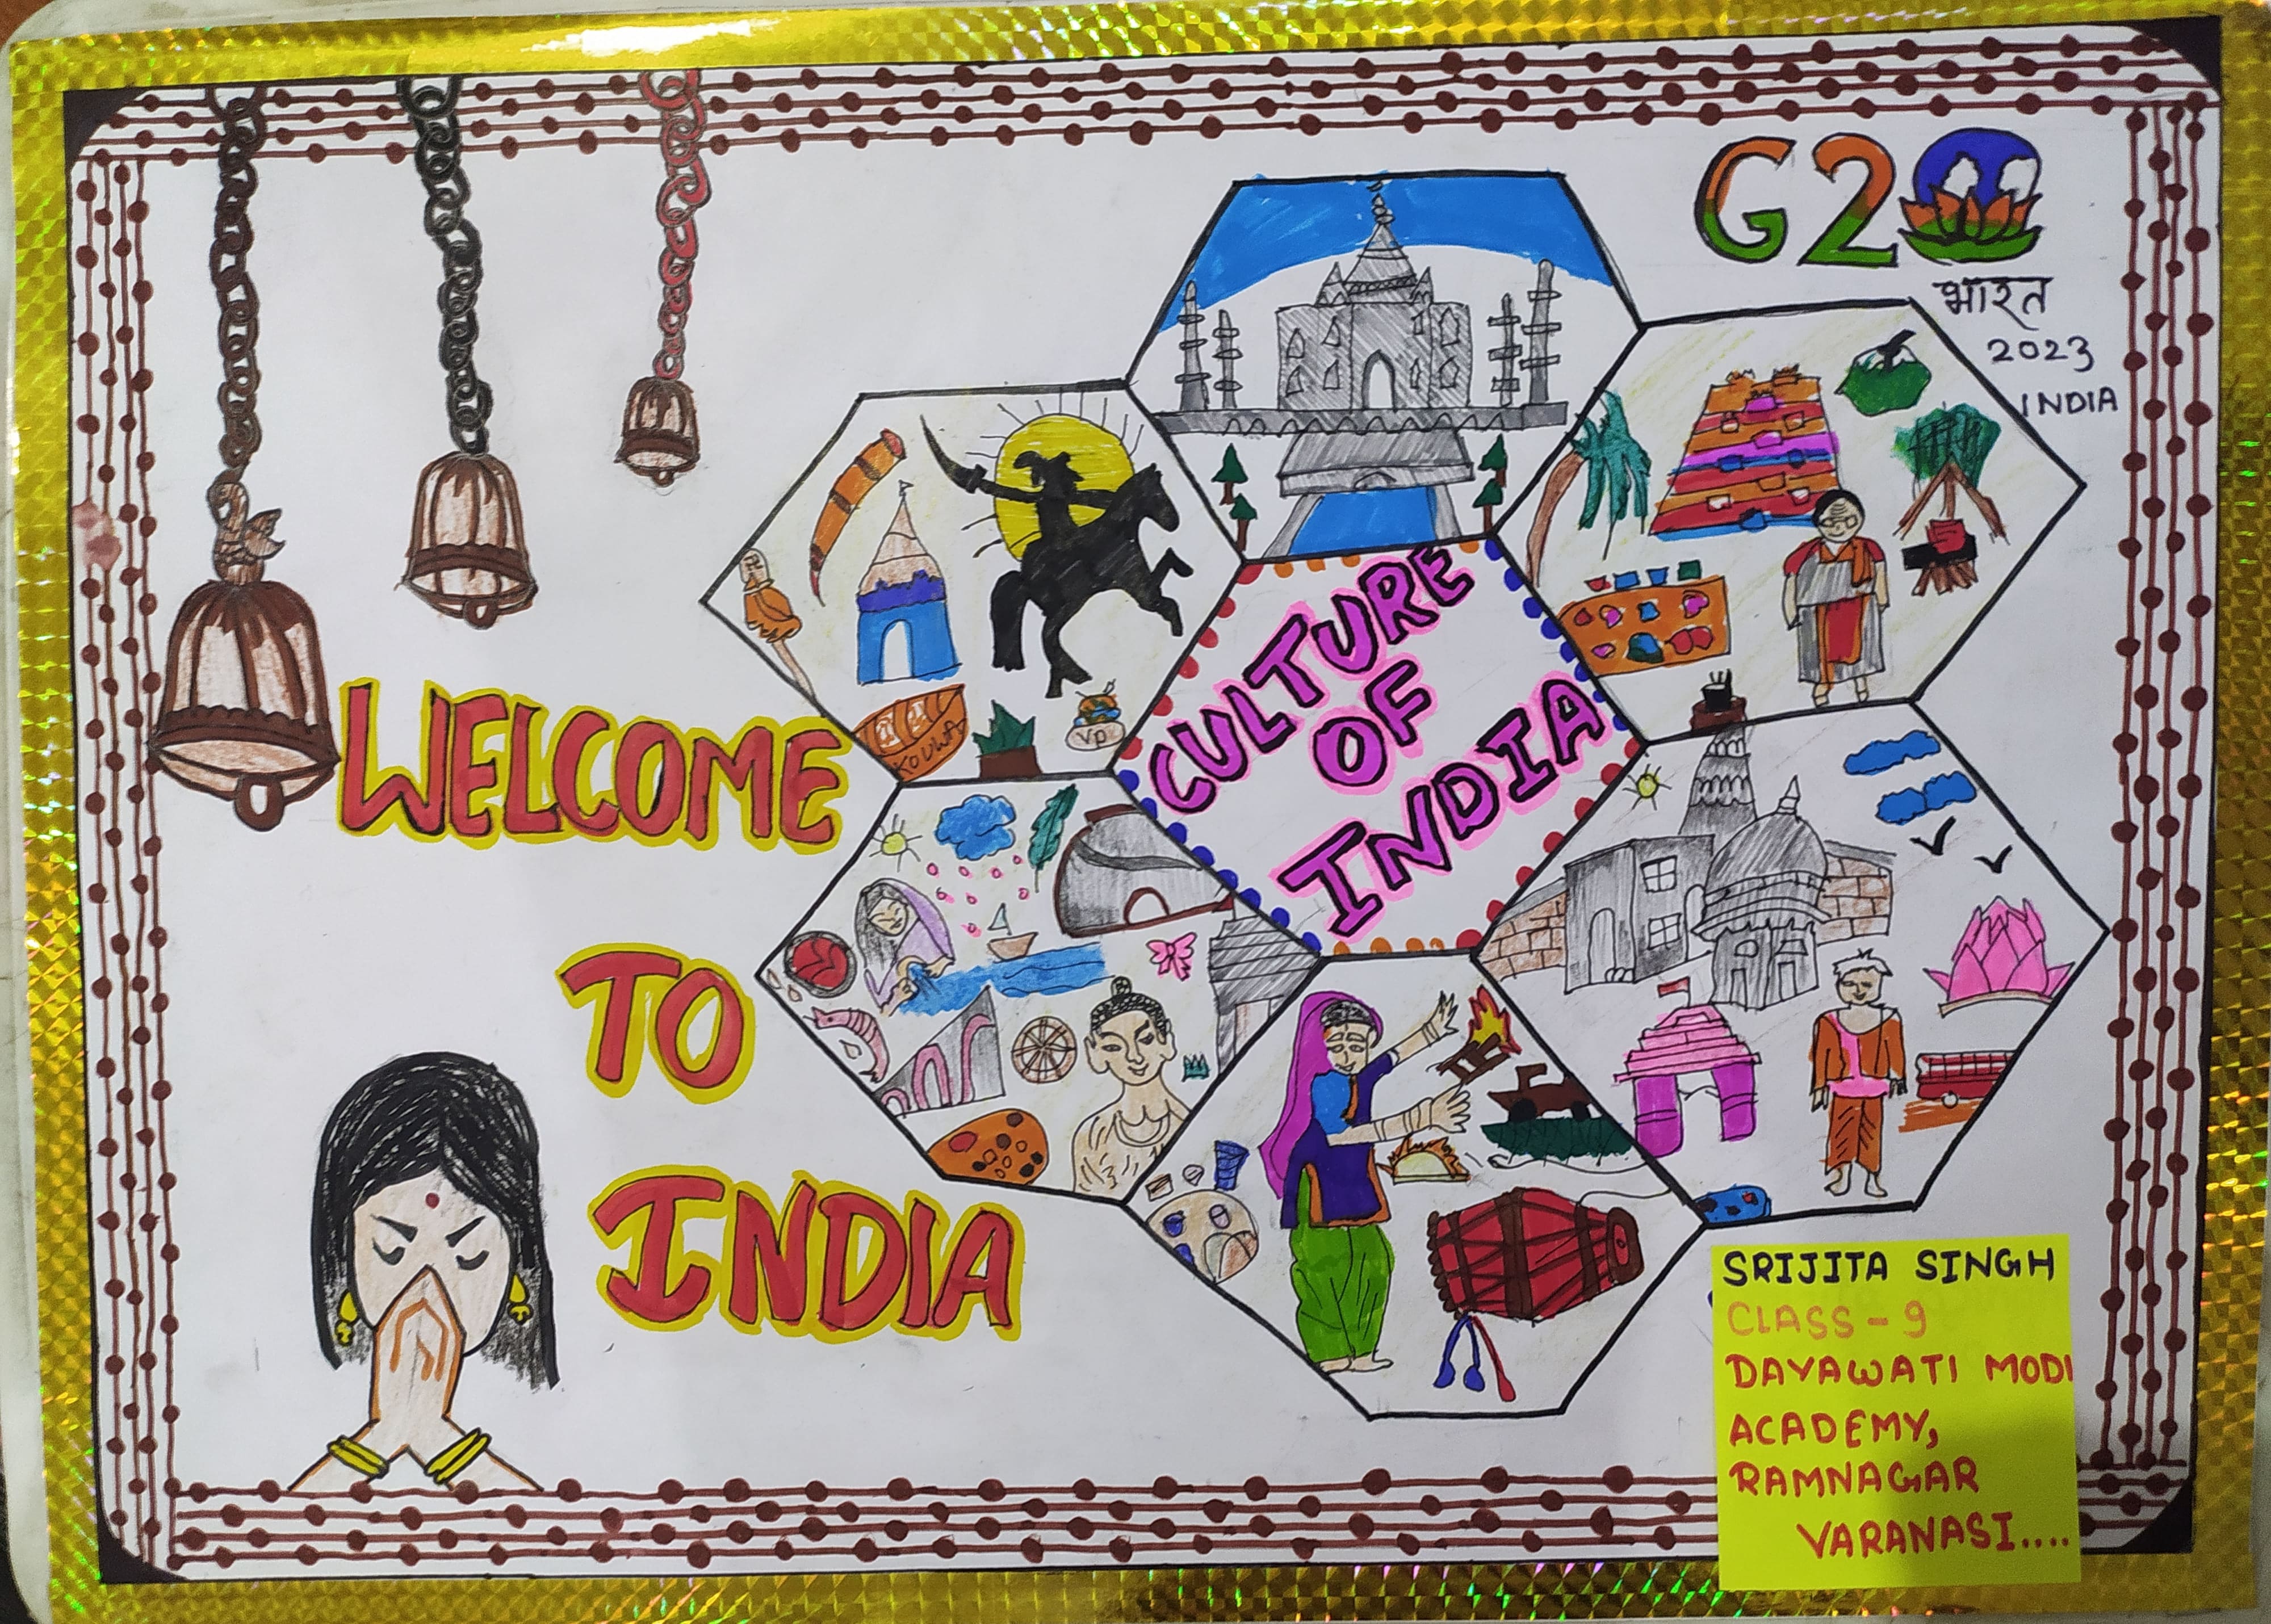 G20
भारत
2023
INDIA
WELCOME
TO
INDIA
CULTURE
OF
INDIA
KOUWA
VP
SRIJITA SINGH
CLASS-9
DAYAWATI MODI
ACADEMY,
RAMNAGAR
VARANASI....